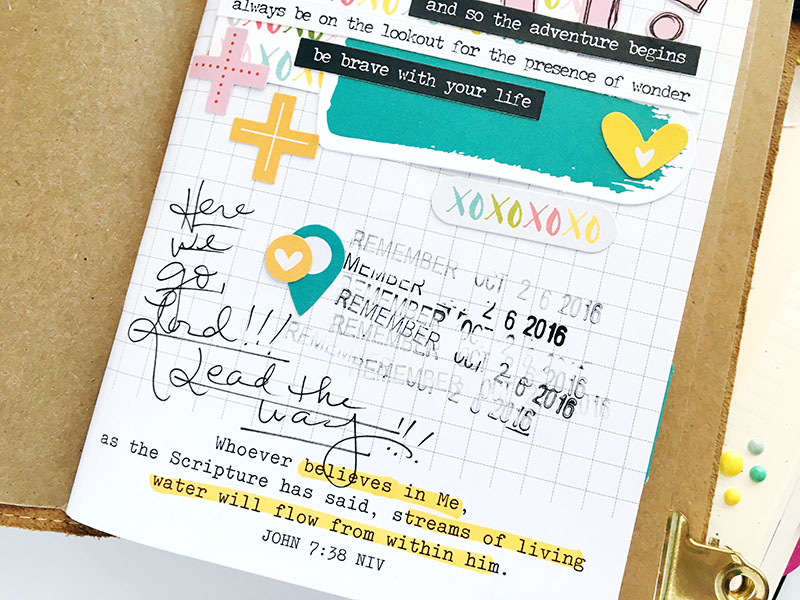 and so the adventure begins
always be on the lookout for the presence of wonder
be brave with your life
XOXOXOXO
Here
we
go,
Lord!!!
Lead the
way!!!
REMEMBER OCT 26 2016
MEMBER 26 2016
REMEMBER OCT
REMEMBER OCT 26 2016
REMEMBER OCT 26 2016
Whoever believes in Me,
as the Scripture has said, streams of living
water will flow from within him.
JOHN 7:38 NIV